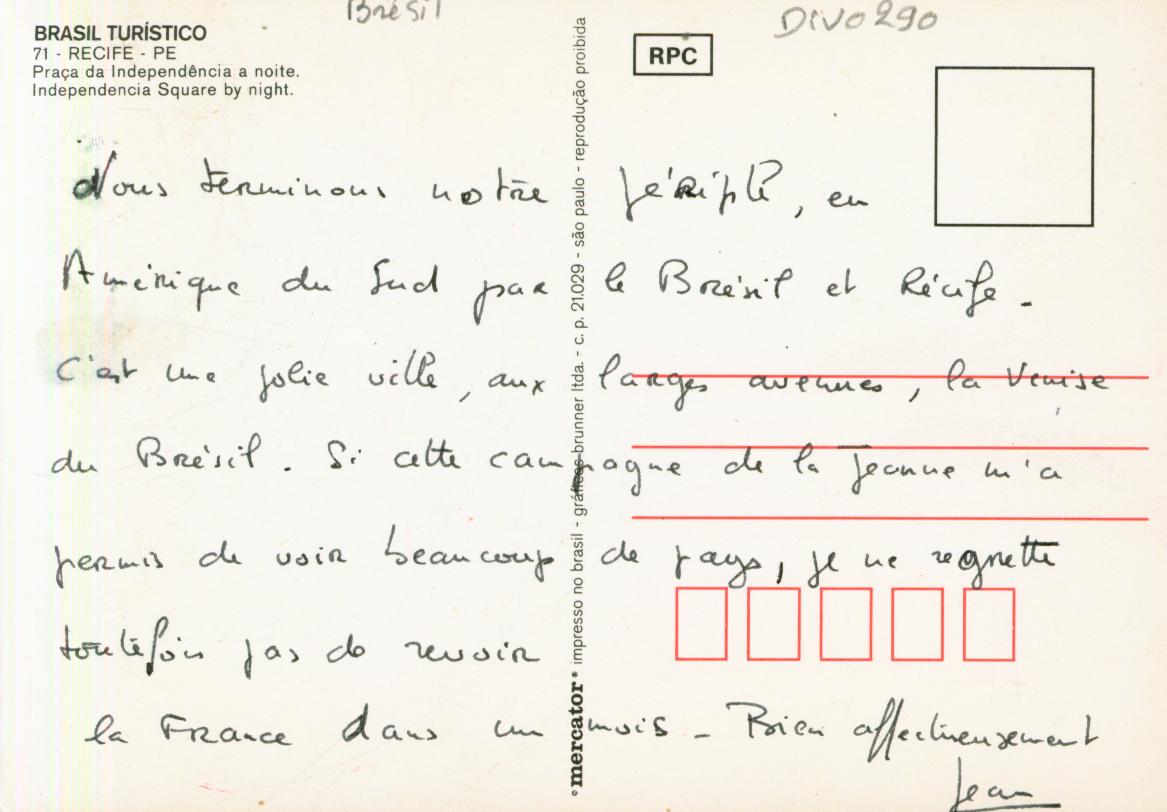 Brésil
DIVO290
BRASIL TURÍSTICO
71 - RECIFE - PE
Praça da Independência a noite.
Independencia Square by night.
RPC
Nous terminons notre périple, en
Amérique du Sud par le Brésil et Récife -
C'est une jolie ville, aux larges avenues, la Venise
du Brésil. Si cette campagne de la Jeanne m'a
permis de voir beaucoup de pays, je ne regrette
toutefois pas de revoir
la France dans un mois - Bien affectueusement
Jean
mercator impresso no brasil - gráficos brunner ltda. - c. p. 21.029 - são paulo - reprodução proibida